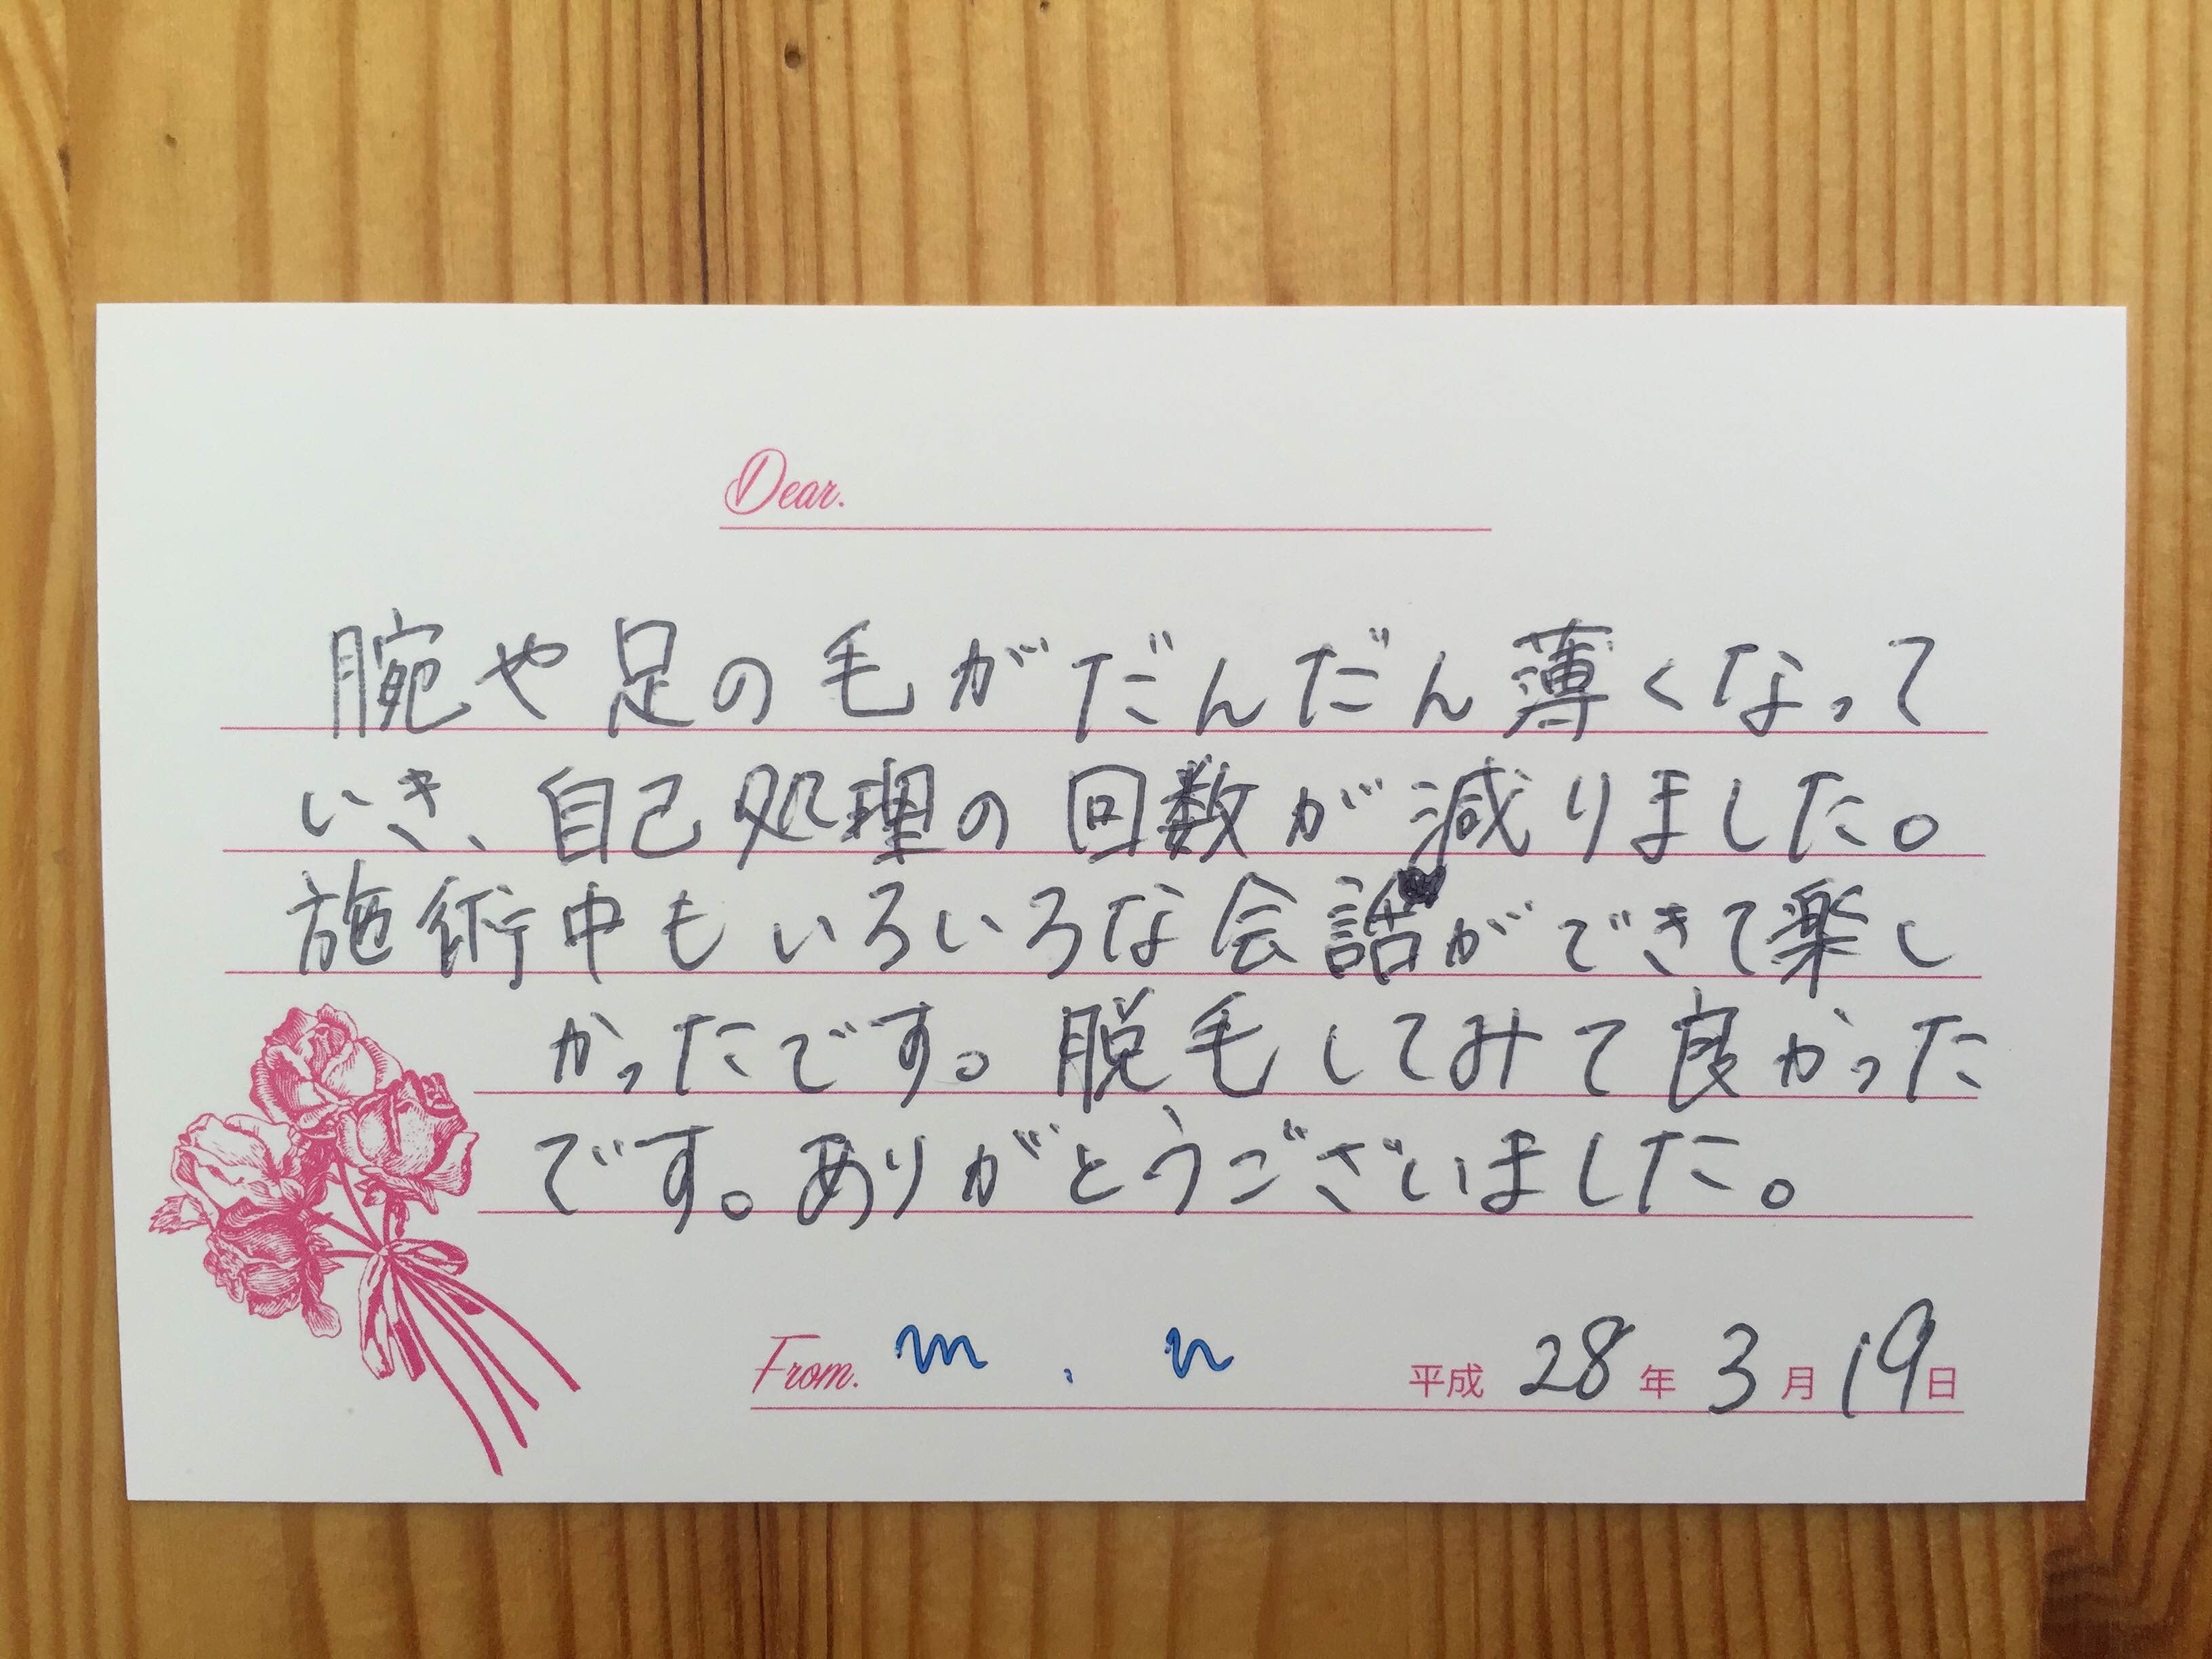 Dear.
腕や足の毛がだんだん薄くなって
いき、自己処理の回数が減りました。
施術中もいろいろな会話ができて楽し
かったです。脱毛してみて良かった
です。ありがとうございました。
From. m . n 平成 28 年 3 月 19 日